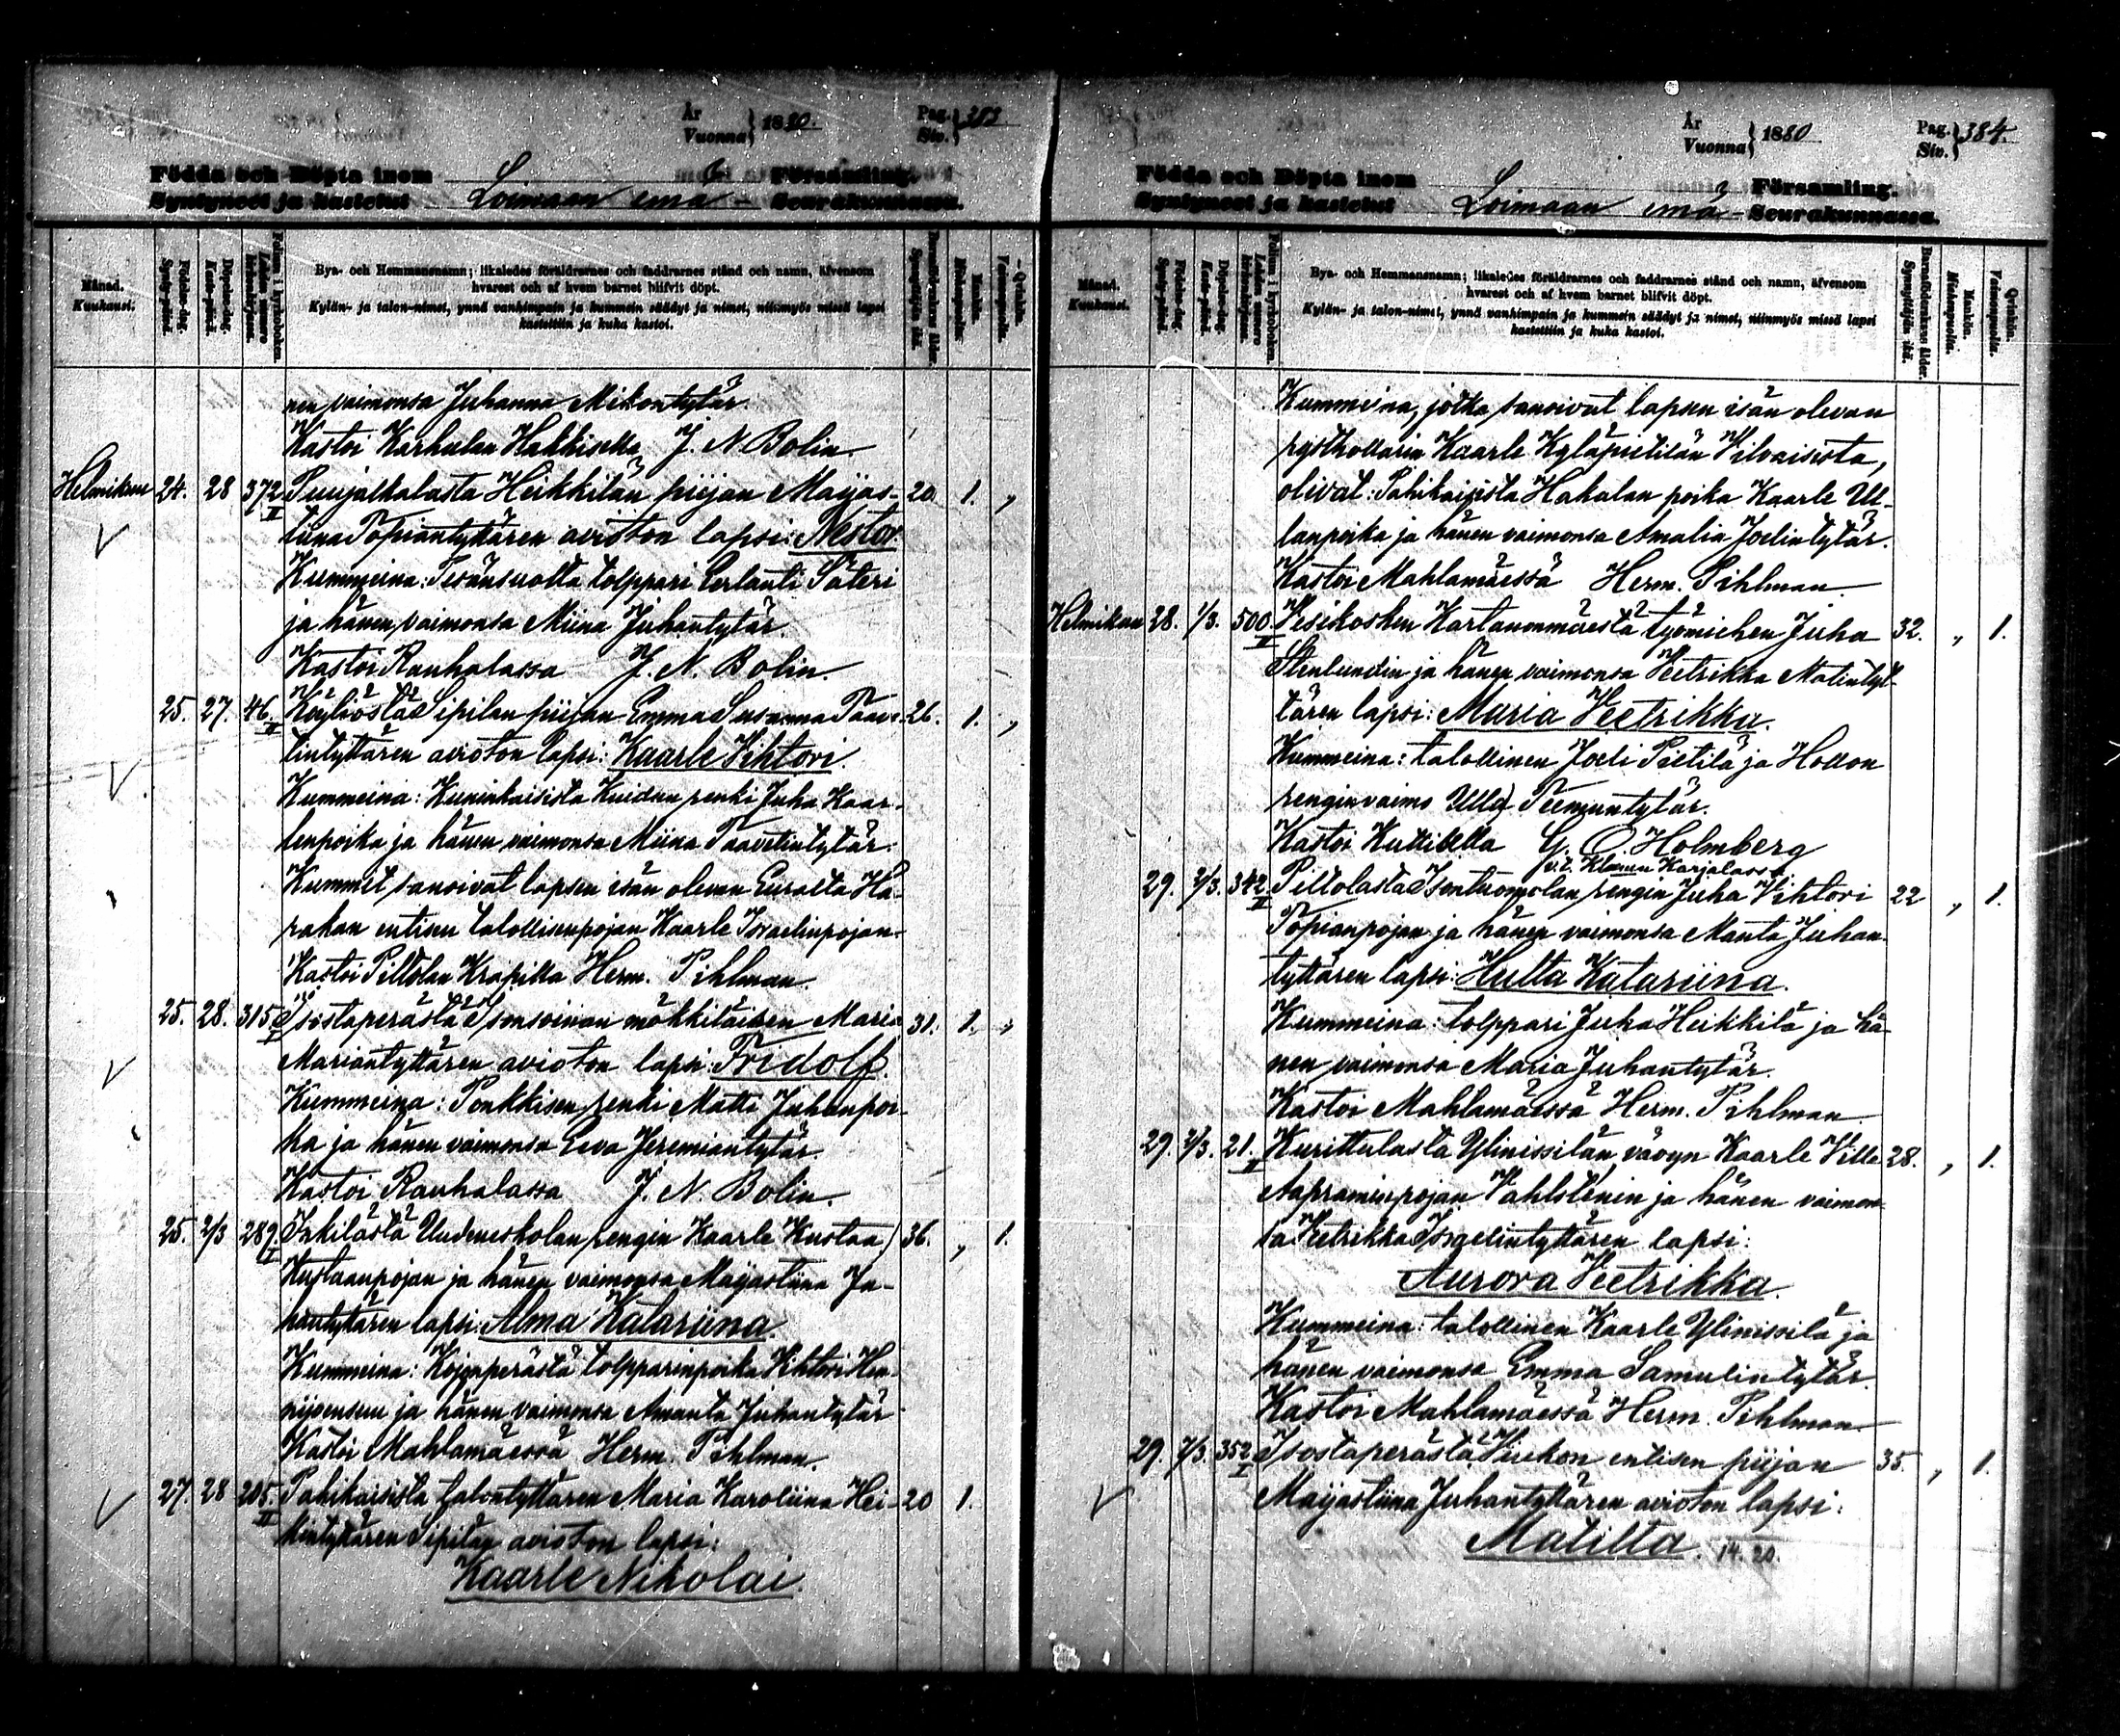 År
Vuonna } 1880.
Pag.
Siv. } 383
Födda och Döpta inom Församling.
Syntyneet ja kastetut Loimaan emä- Seurakunnassa.
Månad.
Kuukausi.
Födelse-dag.
Synty-päivä.
Döpelse-dag.
Kaste-päivä.
Bya- och Hemmansnamn; likaledes föräldrarnes och faddrarnes stånd och namn, äfvensom
hvarest och af hvem barnet blifvit döpt.
Kylän- ja talon-nimet, ynnä vanhimpain ja kummein säädyt ja nimet, niinmyös missä lapsi
kastettiin ja kuka kastoi.
Barnaföderskans ålder.
Synnyttäjän ikä.
Mankön.
Miehenpuolia.
Qvinkön.
Vaimonpuolia.
nen vaimonsa Juhanna Mikontytär.
Kastoi Karhulan Hakkisella J. N. Bolin.
Helmikuu 24. 28 372 II Puujalkalasta Heikkilän piijan Maijas- 20. 1. „
tiina Topiantyttären avioton lapsi: Nestor.
Kummeina: Tesänsuolta tolppari Erlanti Säteri
ja hänen vaimonsa Miina Juhantytär.
Kastoi Rauhalassa J. N. Bolin.
25. 27. 46. II Köyliöstä Sipilän piijan Emma Susanna Taave- 26. 1. „
tintyttären avioton lapsi: Kaarle Vihtori.
Kummeina: Kuninkaisista Kuidun renki Juha Kaar-
lenpoika ja hänen vaimonsa Miina Taavetintytär.
Kummit sanoivat lapsen isän olevan Eurasta Ha-
rakan entisen talollisenpojan Kaarle Israelinpojan.
Kastoi Piltolan Krapilla Herm. Pihlman.
25. 28. 315 Isostaperästä Isonsoinan mökkiläisen Maria 31. 1. „
Mariantyttären avioton lapsi: Fridolf.
Kummeina: Ponkkisen renki Matti Juhanpoi-
ka ja hänen vaimonsa Eeva Jeremiantytär.
Kastoi Rauhalassa J. N. Bolin.
25. 2/3 289. Inkilästä Uudeneskolan rengin Kaarle Kustaa 36. „ 1.
Kustaanpojan ja hänen vaimonsa Maijastiina Ju-
hantyttären lapsi: Alma Katariina.
Kummeina: Kojonperästä tolpparinpoika Vihtori Hen-
ja hänen vaimonsa Amanta Juhantytär
Kastoi Mahlamäessä Herm. Pihlman.
27. 28 205. II Pahikaisista talontyttären Maria Karoliina Hei- 20 1.
kintyttären Sipilän avioton lapsi:
Kaarle Nikolai.
År
Vuonna } 1880
Pag.
Siv. } 384.
Födda och Döpta inom Församling.
Syntyneet ja kastetut Loimaan emä- Seurakunnassa.
Månad.
Kuukausi.
Födelse-dag.
Synty-päivä.
Döpelse-dag.
Kaste-päivä.
Bya- och Hemmansnamn; likaledes föräldrarnes och faddrarnes stånd och namn, äfvensom
hvarest och af hvem barnet blifvit döpt.
Kylän- ja talon-nimet, ynnä vanhimpain ja kummein säädyt ja nimet, niinmyös missä lapsi
kastettiin ja kuka kastoi.
Barnaföderskans ålder.
Synnyttäjän ikä.
Mankön.
Miehenpuolia.
Qvinkön.
Vaimonpuolia.
Kummeina, jotka sanoivat lapsen isän olevan
Kaarle Kyläpietilän Vilvaisista,
olivat: Pahikaisista Hakalan poika Kaarle Ul-
lanpoika ja hänen vaimonsa Amalia Joelintytär.
Kastoi Mahlamäessä Herm. Pihlman.
Helmikuu 28. 1/3. 500. II Vesikosken Kartanonmäestä työmiehen Juha 32. „ 1.
Stenlundin ja hänen vaimonsa Veetrikka Matintyt-
tären lapsi: Maria Veetrikka.
Kummeina: talollinen Joeli Pietilä ja Hollon
renginvaimo Ulla Teemuntytär.
Kastoi Kuttilella G. O. Holmberg
v. t. Klamin Karjalassa
29. 2/3. 342. II Piltolasta Isontuompolan rengin Juha Vihtori 22 „ 1.
Topianpojan ja hänen vaimonsa Manta Juhan-
tyttären lapsi: Hulta Katariina.
Kummeina: tolppari Juha Heikkilä ja hä-
nen vaimonsa Maria Juhantytär.
Kastoi Mahlamäessä Herm. Pihlman.
29. 2/3. 21. II Kurittulasta Ylinissilän vävyn Kaarle Ville 28. „ 1.
Aapraminpojan Vahlsténin ja hänen vaimon-
sa Veetrikka Israelintyttären lapsi:
Aurora Veetrikka.
Kummeina: talollinen Kaarle Ylinissilä ja
hänen vaimonsa Emma Samulintytär.
Kastoi Mahlamäessä Herm. Pihlman.
29. 7/3. 352 I Isostaperästä Piukon entisen piijan 35. „ 1.
Maijastiina Juhantyttären avioton lapsi:
Matilta. 14. 20.